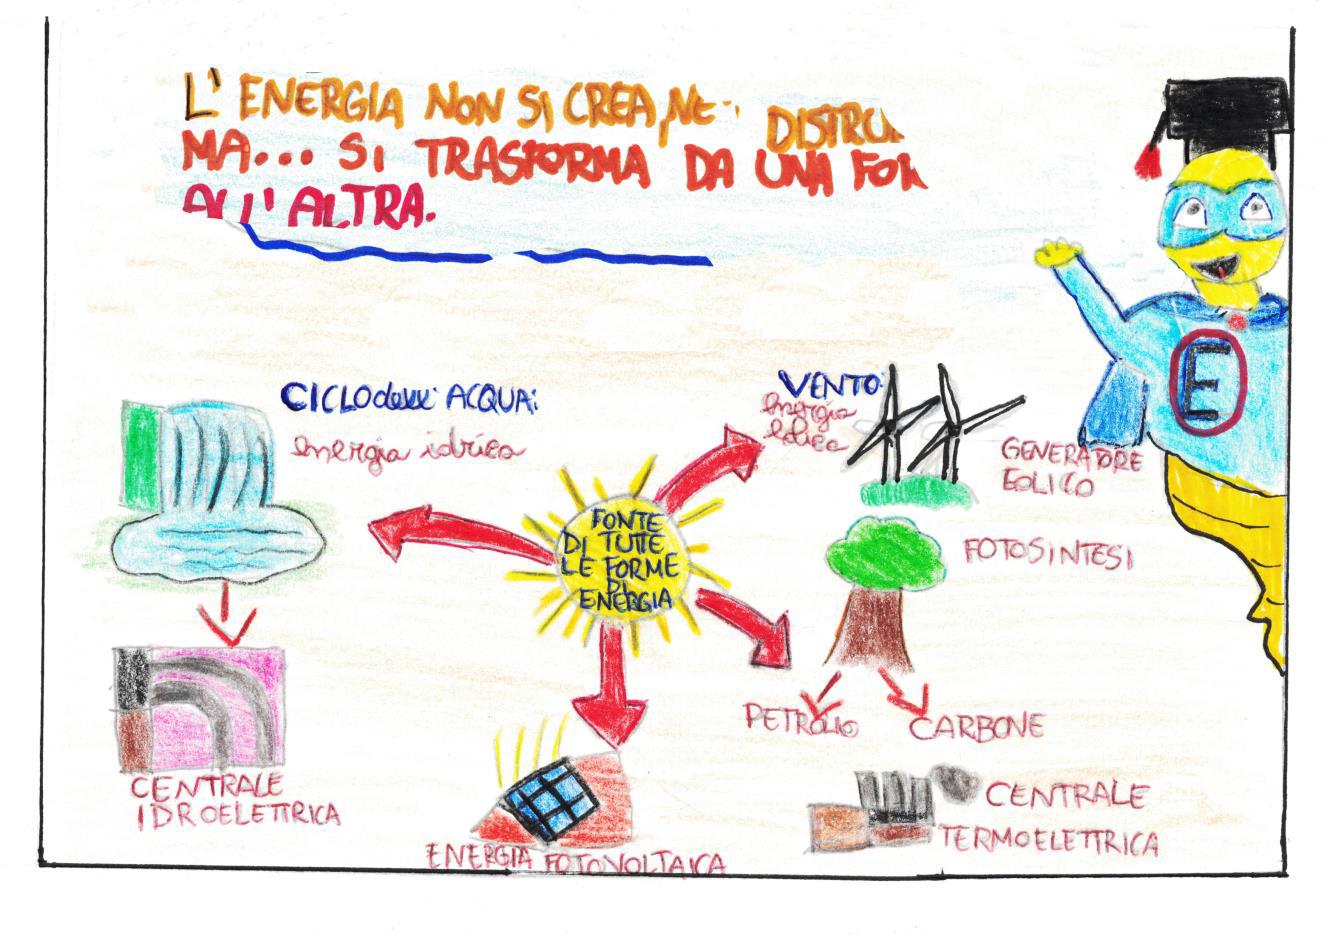 L' ENERGIA NON SI CREA, NE' DISTRU
MA... SI TRASFORMA DA UNA FOR
ALL'ALTRA.
CICLO dell' ACQUA:
energia idrica
VENTO:
energia
eolica
GENERATORE
EOLICO
E
FONTE
DI TUTTE
LE FORME
DI
ENERGIA
FOTOSINTESI
PETROLIO
CARBONE
CENTRALE
IDROELETTRICA
CENTRALE
TERMOELETTRICA
ENERGIA FOTOVOLTAICA